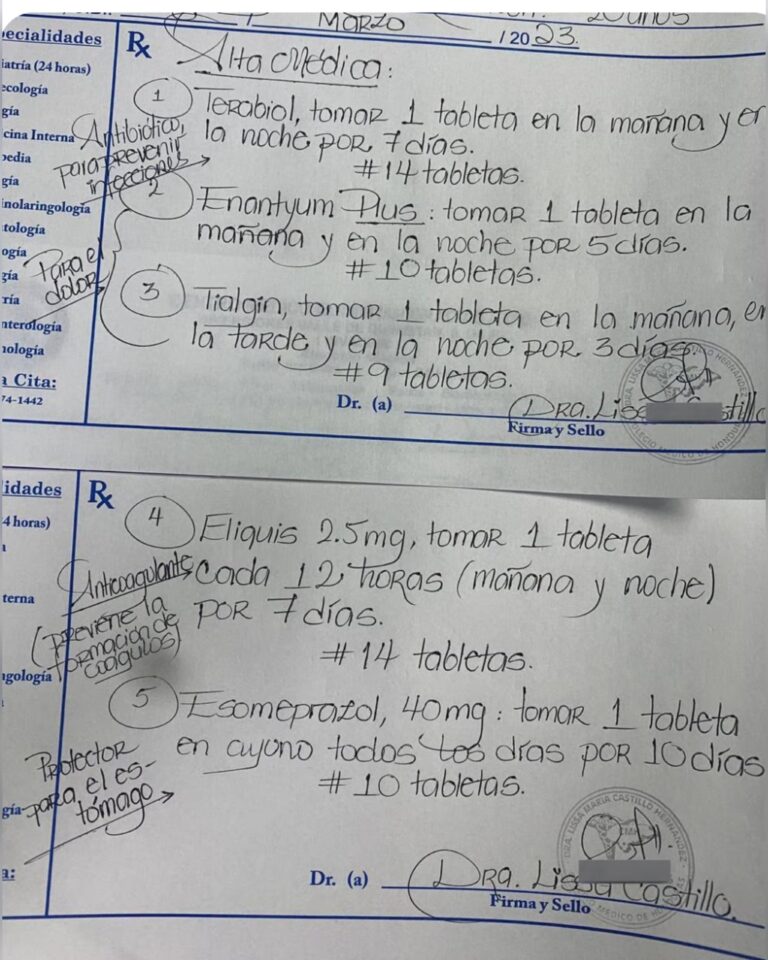 MARZO /2023.
ecialidades
Rx Alta Médica:
iatría (24 horas)
ecología
gía
cina Interna
pedia
gía
nolaringología
tología
ogía
gía
ría
nterología
nología
a Cita:
74-1442
1 Terabiol, tomar 1 tableta en la mañana y en
la noche por 7 días.
#14 tabletas.
Antibiótico,
para prevenir
infecciones
2 Enantyum Plus: tomar 1 tableta en la
mañana y en la noche por 5 días.
#10 tabletas.
Para el
dolor
3 Tialgin, tomar 1 tableta en la mañana, en
la tarde y en la noche por 3 días
#9 tabletas.
Dr. (a) Dra. Liss stillo
Firma y Sello
idades
Rx
4 horas)
terna
ngología
gía
a:
4 Eliquis 2.5mg, tomar 1 tableta
cada 12 horas (mañana y noche)
por 7 días.
#14 tabletas.
Anticoagulante
(previene la
formación de
coágulos)
5 Esomeprazol, 40mg: tomar 1 tableta
en ayuno todos los días por 10 días
#10 tabletas.
Protector
para el es-
tómago
DRA. LISSA MARIA CASTILLO HERNANDEZ
Dr. (a) Dra. Lissa Castillo.
Firma y Sello